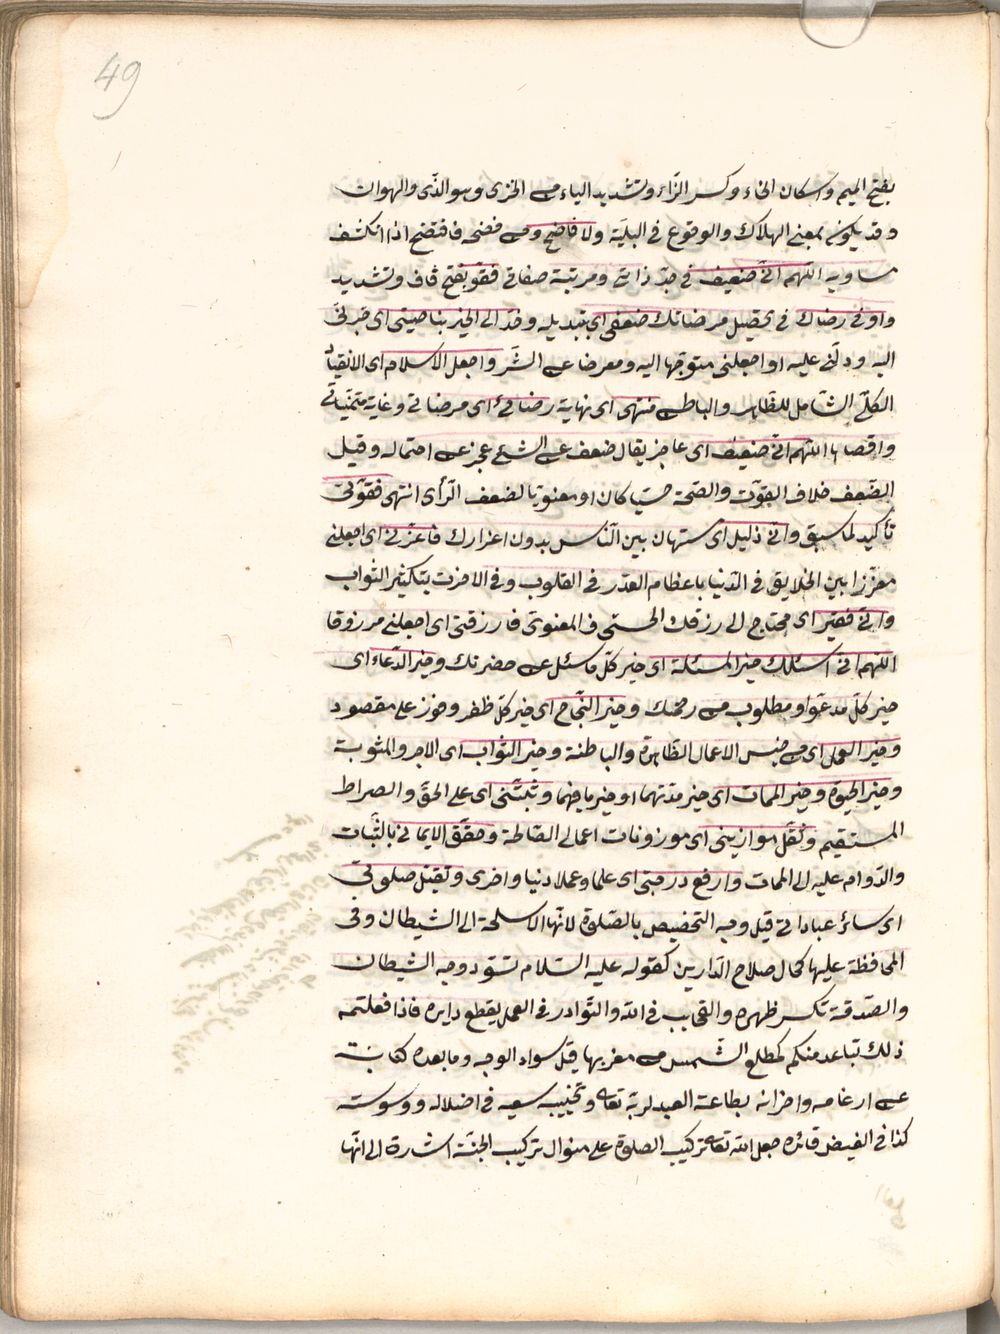 49
بفتح الميم واسكان الخاء وكسر الزاء وتشديد الياء من الخزى وهو الذى والهوان
وقد يكون بمعنى الهلاك والوقوع فى البلية ولا فاضح ومن فضحه فافتضح اذا انكشف
مساويه اللهم انى ضعيف فى حد ذاتى ومرتبة صفاتى فقو بفتح قاف وتشديد
واو فى رضاك فى تحصيل مرضاتك ضعفى اى بتبديله وخذ الى الخير بناصيتى اى قربنى
اليه ودلنى عليه او اجعلنى متوجها اليه ومعرضا عن الشر واجعل الاسلام اى الانقياد
الكلى الشامل للظاهر والباطن منتهى اى نهاية رضائى اى مرضاتى وغاية متمنياتى
واقصاها اللهم انى ضعيف اى عاجز يقال ضعف عن الشئ عجز عن احتماله وقيل
الضعف خلاف القوة والصحة حسيا كان او معنويا لضعف الرأى انتهى فقونى
تأكيد لما سبق وانى ذليل اى مستهان بين الناس بدون اعزازك فاعزنى اى اجعلنى
معززا بين الخلايق فى الدنيا باعظام القدر فى القلوب وفى الاخرت بتكثير الثواب
وانى فقير اى محتاج الى رزقك الحسى والمعنوى فارزقنى اى اجعلنى مرزوقا
اللهم انى اسئلك خير المسئلة اى خير كل ما سئل عن حضرتك وخير الدعاء اى
خير كل مدعو او مطلوب من رحمتك وخير النجاح اى خير كل ظفر وفوز على مقصود
وخير العمل اى من جنس الاعمال الظاهرة والباطنة وخير الثواب اى الاجر والمثوبة
وخير الحيوة وخير الممات اى خير مدتهما او خير ما فيهما وثبتنى اى على الحق والصراط
المستقيم وثقل موازينى اى موزونات اعمالى الصالحة وحقق الايمانى بالثبات
والدوام عليه الى الممات وارفع درجتى اى علما وعملا دنيا واخرى وتقبل صلوتى
اى سائر عباداتى قيل وجه التخصيص بالصلوة لانها الاسلحة الى الشيطان وفى
المحافظة عليها كمال صلاح الدارين كقوله عليه السلام تسود وجه الشيطان
والصدقة تكسر ظهره والتحابب فى الله والتوادر فى العمل يقطع دابره فاذا فعلتمه
ذلك تباعد منكم كمطلع الشمس من مغربها قيل سواد الوجه وما بعده كناية
عن ارغامه واحزانه بطاعة العبد لربه تعالى وتخييب سعيه فى اضلاله ووسوسته
كذا فى الفيض فائده جعل الله تعالى تركيب الصلوة على منوال تركيب الجنة اشارة الى انها